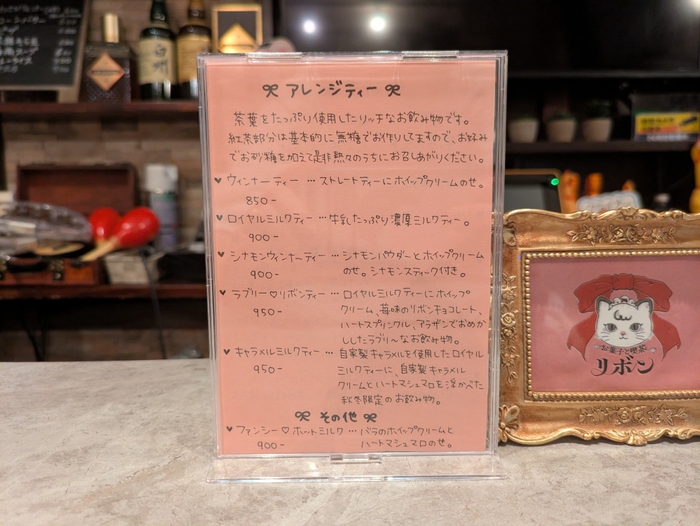 アレンジティー
茶葉をたっぷり使用したリッチなお飲み物です。
紅茶部分は基本的に無糖でお作りしてますので、お好み
でお砂糖を加えて是非熱々のうちにお召しあがりください。
♥ ウィンナーティー … ストレートティーにホイップクリームのせ。
850-
♥ ロイヤルミルクティー … 牛乳たっぷり濃厚ミルクティー。
900-
♥ シナモンウィンナーティー … シナモンパウダーとホイップクリーム
900- のせ。シナモンスティック付き。
♥ ラブリー♡リボンティー … ロイヤルミルクティーにホイップ
950- クリーム、苺味のリボンチョコレート、
ハートスプリンクル、アラザンでおめか
ししたラブリ〜なお飲み物。
♥ キャラメルミルクティー … 自家製キャラメルを使用したロイヤル
950- ミルクティーに、自家製キャラメル
クリームとハートマシュマロを浮かべた
秋冬限定のお飲み物。
その他
♥ ファンシー♡ホットミルク … バラのホイップクリームと
900- ハートマシュマロのせ。
お菓子と喫茶
リボン